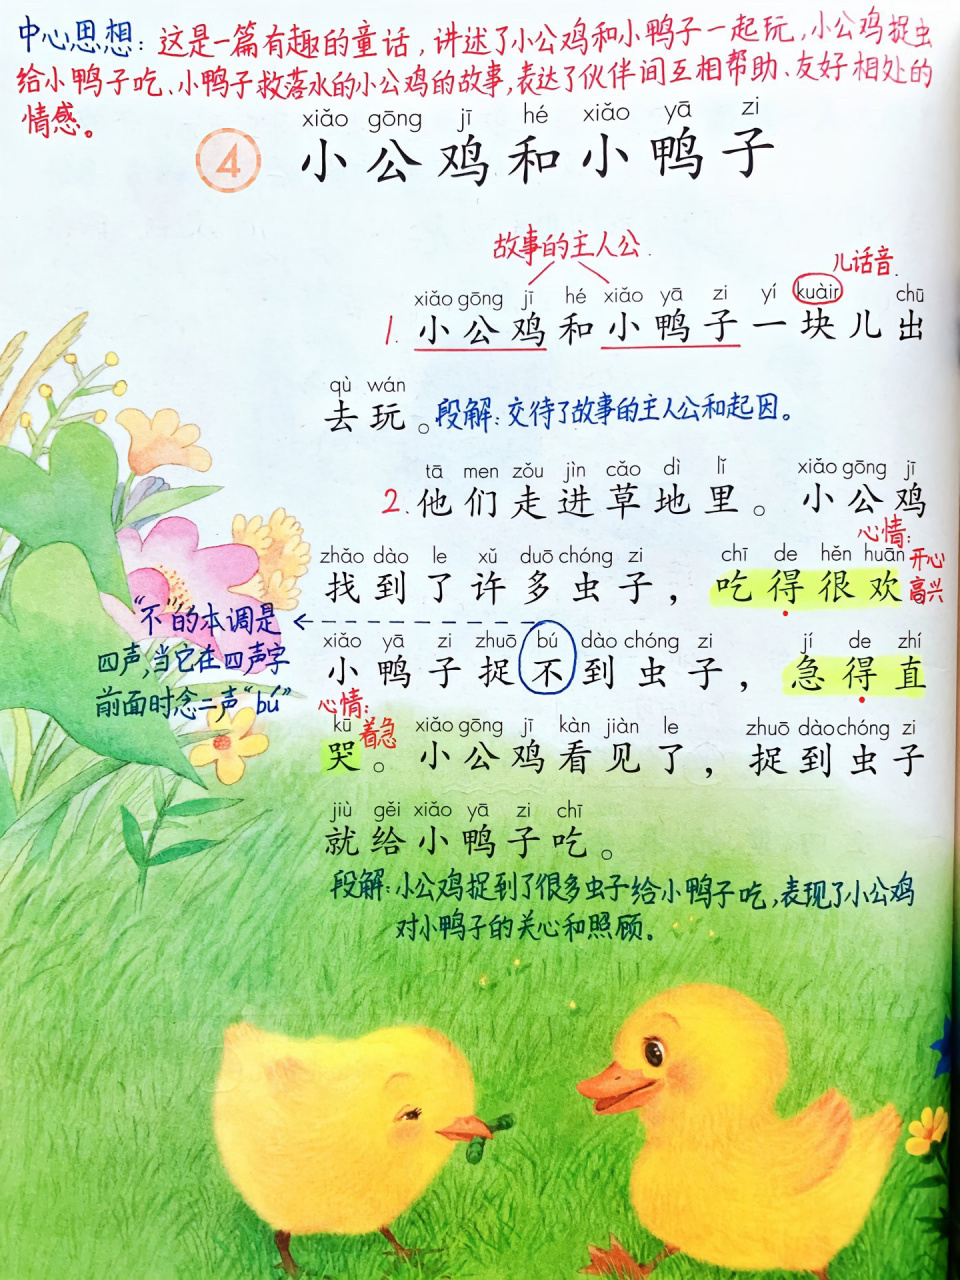 中心思想：这是一篇有趣的童话，讲述了小公鸡和小鸭子一起玩，小公鸡捉虫
给小鸭子吃、小鸭子救落水的小公鸡的故事，表达了伙伴间互相帮助、友好相处的
情感。
xiǎo gōng jī hé xiǎo yā zi
4 小公鸡和小鸭子
故事的主人公.
儿话音.
xiǎo gōng jī hé xiǎo yā zi yí kuàir chū
1. 小公鸡和小鸭子一块儿出
qù wán
去玩。段解：交待了故事的主人公和起因。
tā men zǒu jìn cǎo dì lǐ xiǎo gōng jī
2. 他们走进草地里。小公鸡
心情：开心 高兴
zhǎo dào le xǔ duō chóng zi chī de hěn huān
找到了许多虫子，吃得很欢
"不"的本调是
四声，当它在四声字
前面时念二声"bú"
xiǎo yā zi zhuō bú dào chóng zi jí de zhí
小鸭子捉不到虫子，急得直
心情：着急
kū xiǎo gōng jī kàn jiàn le zhuō dào chóng zi
哭。小公鸡看见了，捉到虫子
jiù gěi xiǎo yā zi chī
就给小鸭子吃。
段解：小公鸡捉到了很多虫子给小鸭子吃，表现了小公鸡
对小鸭子的关心和照顾。